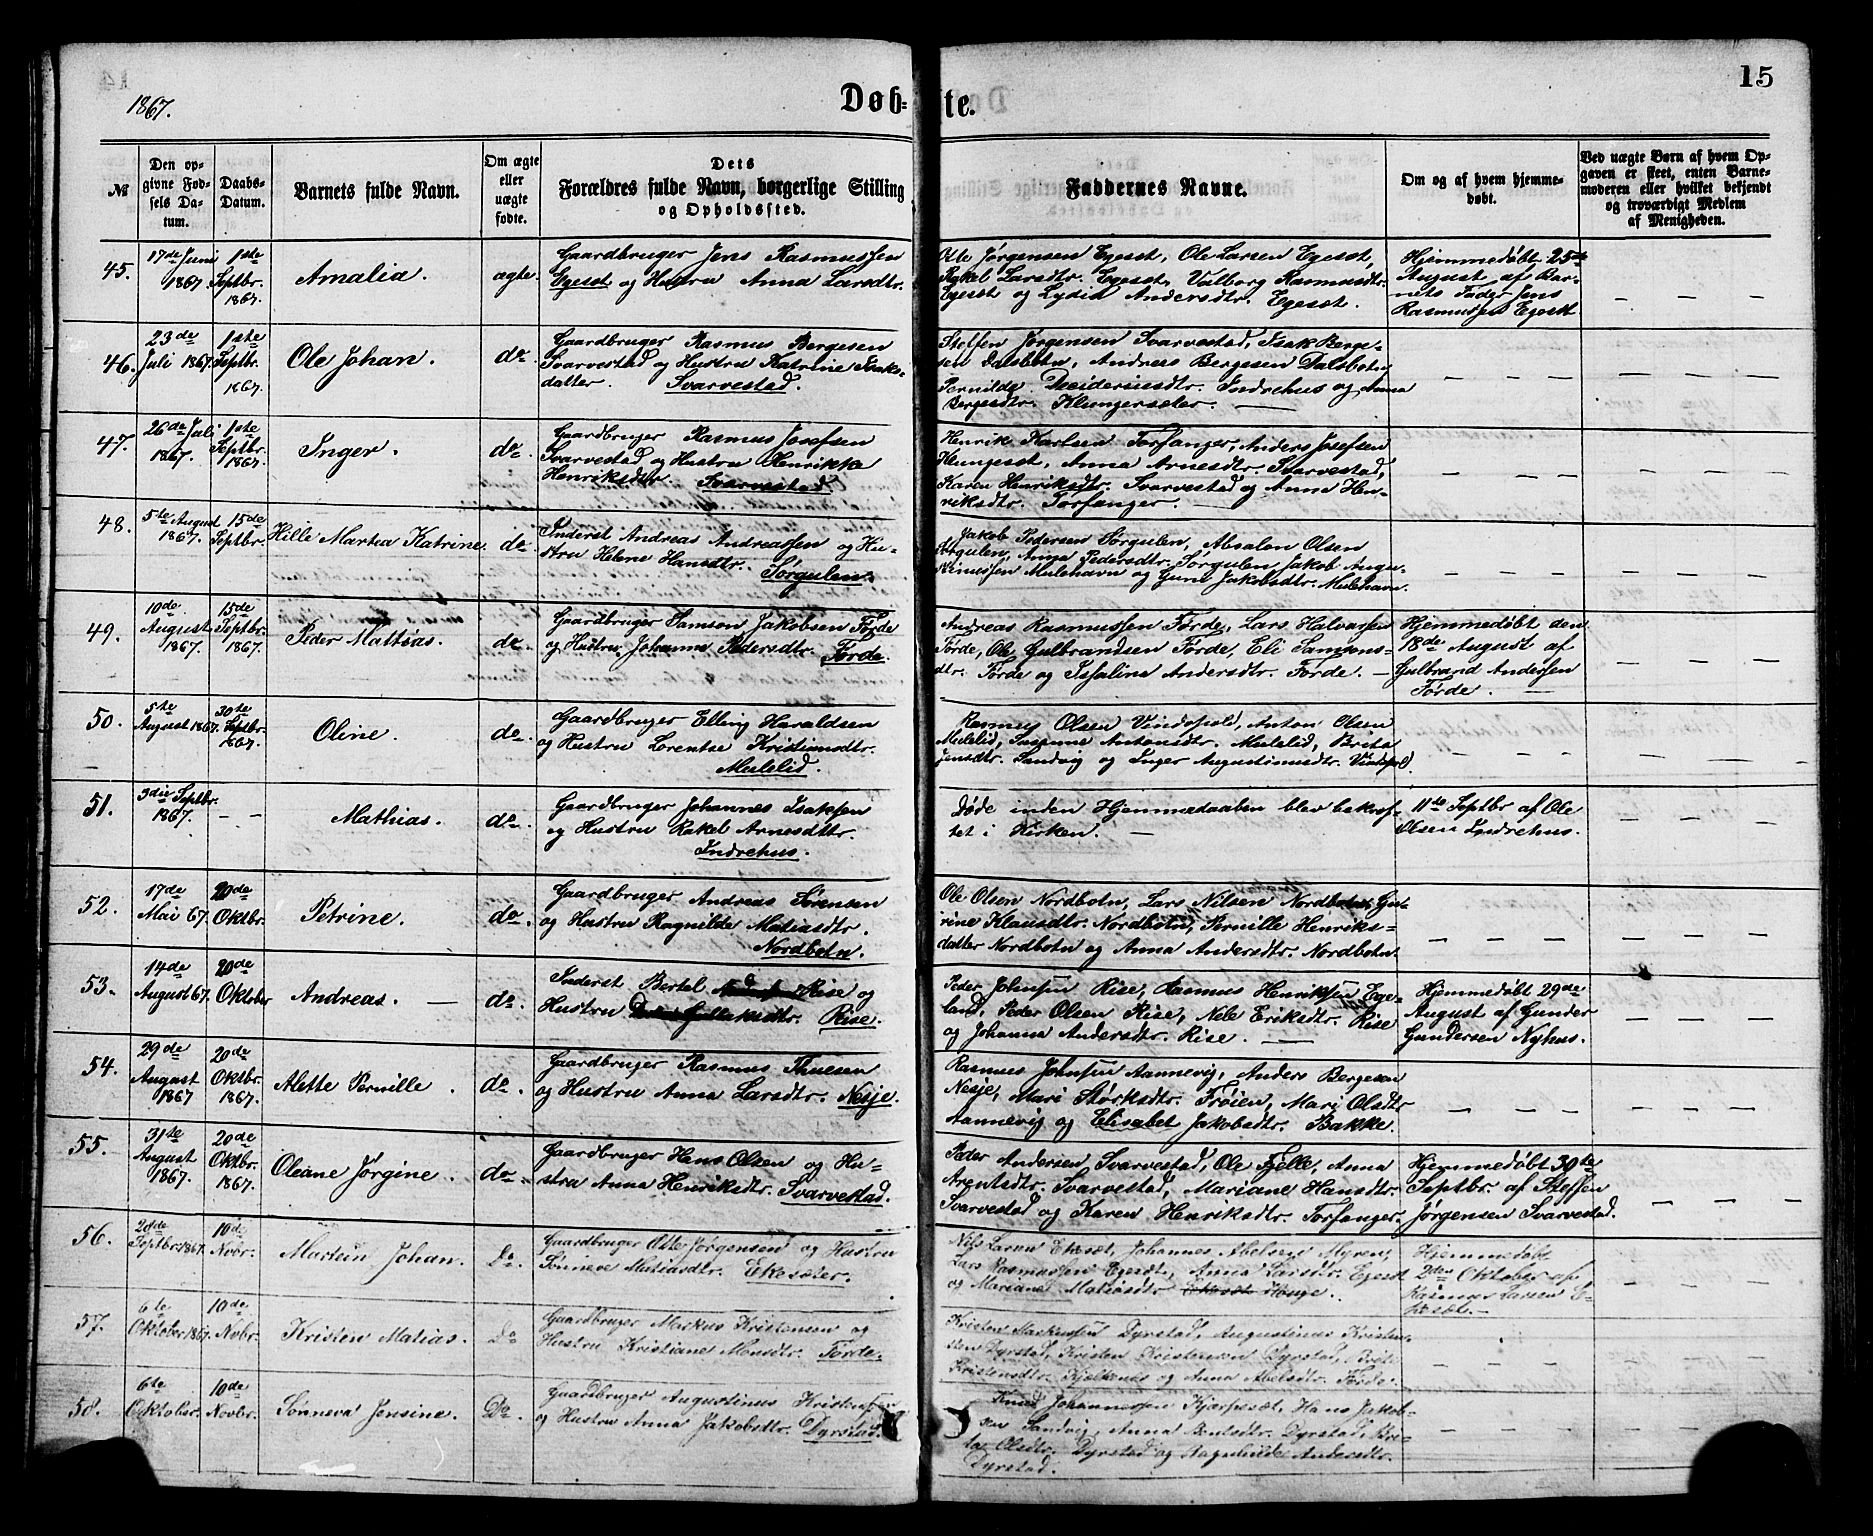 1867.
Døb-
te.
15
№
Den op-
givne Fød-
sels Da-
tum.
Daabs-
Datum.
Barnets fulde Navn.
Om ægte
eller
uægte
fødte.
Dets
Forældres fulde Navn, borgerlige Stilling
og Opholdssted.
Faddernes Navne.
Om og af hvem hjemme-
døbt.
Ved uægte Børn af hvem Op-
gaven er skeet, enten Barne-
moderen eller hvilket bekjendt
og troværdigt Medlem
af Menigheden.
45.
17de Juni
1867
1ste
Septbr.
1867.
Amalia.
ægte.
Gaardbruger Jens Rasmussen
Egeset og Hustru Anna Larsdtr.
Ole Jørgensen Egeset, Ole Larsen Egeset,
Rakel Larsdtr. Egeset, Valborg Rasmusdtr.
Egeset og Lydia Andersdtr. Egeset.
Hjemmedøbt 25de
August af Bar-
nets Fader Jens
Rasmussen Egeset
46.
23de
Juli 1867
1ste
Septbr.
1867.
Ole Johan.
do.
Gaardbruger Rasmus Bergesen
Svarvestad og Hustru Katrine Isaks-
datter. Svarvestad.
Steffen Jørgensen Svarvestad, Isak Berge-
sen Dalsbotn, Andreas Bergesen Dalsbotn
Pernilde Desideriusdtr. Indrehus og Anna
Bergesdtr. Klungersæter.
47.
26de Juli
1867.
1ste
Septbr.
1867.
Inger.
do.
Gaardbruger Rasmus Josefsen
Svarvestad og Hustru Henrikke
Henriksdtr. Svarvestad.
Henrik Karlsen Torfanger, Anders Josefsen
Haugeset, Anna Arnesdtr. Svarvestad,
Karen Henriksdtr. Svarvestad og Anna Hen-
riksdtr. Torfanger.
48.
5te August
1867.
15de
Septbr.
Hille Martea Katrine.
do.
Inderst Andreas Andreassen og Hu-
stru Helene Hansdtr. Sørgulen.
Jakob Pedersen Sørgulen, Absalon Olsen
Sørgulen, Anna Pedersdtr. Sørgulen Jakob Augu-
stinussen Mulehavn og Guru Jakobsdtr. Mulehavn.
49.
10de
August
1867.
15de
Septbr.
1867.
Peder Mathias.
do.
Gaardbruger Samson Jakobsen Førde
og Hustru Johanna Pedersdtr. Førde.
Andreas Rasmussen Førde, Lars Halvorsen
Førde, Ole Gulbrandsen Førde, Eli Samsons-
dtr. Førde og Issalina Andersdtr. Førde.
Hjemmedøbt den
18de August af
Gulbrand Andersen
Førde.
50.
5te
August 1867.
30te
Septbr.
1867.
Oline.
do.
Gaardbruger Elling Haraldsen
og Hustru Lorentse Kristiansdtr.
Mulelid.
Rasmus Olsen Vindspol, Anton Olsen
Mulelid, Susanne Antonsdtr. Mulelid, Brita
Jensdtr. Sandvig og Inger Augustinusdtr. Vindspol.
51.
3die Septbr.
1867.
Mathias.
do.
Gaardbruger Johannes Isaksen
og Hustru Rakel Arnesdtr.
Indrehus.
Døde inden Hjemmedaaben blev bekræf-
tet i Kirken.
11te Septbr af Ole
Olsen Indrehus.
52.
17de
Mai 67.
20de
Oktbr.
Petrine.
do.
Gaardbruger Andreas Sørensen
og Hustru Ragnilde Matiasdtr.
Nordbotn.
Ole Olsen Nordbotn, Lars Nilsen Nordbotn, Gu-
rine Klausdtr. Nordbotn, Pernille Henriks-
datter Nordbotn og Anna Andersdtr. Nordbotn.
53.
14de
August 67.
20de
Oktober
Andreas.
do.
Inderst Bertel Rise og
Hustru Rise.
Peder Johnsen Rise, Rasmus Henriksen Ege-
land, Peder Olsen Rise, Nele Eriksdtr. Rise
og Johanna Andersdtr. Rise.
Hjemmedøbt 29de
August af Gunder
Gundersen Nyhus.
54.
29de
August
1867
20de
Oktbr.
1867.
Alette Pernille.
do.
Gaardbruger Rasmus Thuesen
og Hustru Anna Larsdtr. Nesje.
Rasmus Johnsen Aannevig, Anders Bergesen
Nesje, Mari Størksdtr. Frøien, Mari Olsdtr
Aannevig og Elisabet Jakobsdtr. Bakke.
55.
31te
August
1867.
20de
Oktbr.
1867.
Oleane Jørgine.
do.
Gaardbruger Hans Olsen og Hu-
stru Anna Henriksdtr. Svarvestad.
Peder Andersen Svarvestad, Ole Fjelle, Anna
Arentsdtr. Svarvestad, Mariane Hansdtr.
Svarvestad og Karen Henriksdtr. Torfanger.
Hjemmedøbt 30te
Septbr. af Steffen
Jørgensen Svarvestad.
56.
20de
Septbr 1867.
10de
Novbr.
Martin Johan.
Do.
Gaardbruger Otte Jørgensen og Hustru
Sønneve Matiasdtr. Ekesæter.
Nils Larsen Ekesæt, Johannes Abelsen Myren,
Lars Rasmussen Egesæt, Anna Larsdtr. Egesæt
og Mariane Matiasdtr Ekesæt Hauge.
Hjemmedøbt
2den Oktober af
Rasmus Larsen E-
kesæt.
57.
6te
Oktober 1867.
10de
Novbr.
Kristen Matias.
Do
Gaardbruger Markus Kristensen og
Hustru Kristiane Monsdtr. Førde.
Kristen Markussen Dyrstad, Augustinus Kristen-
sen Dyrstad, Kristen Kristensen Dyrstad, Brite
Kristensdtr. Kjølknes og Anna Abelsdtr. Førde.
58.
6te
Oktober.
10de
Novbr.
Sønneva Jensine.
Do.
Gaardbruger Augustinus Kristensen
og Hustru Anna Jakobsdtr. Dyrstad.
Knud Johannessen Kjærpesæt, Hans Jakob-
sen Sandvig, Anna Bentsdtr. Dyrstad, Bri-
ta Olsdtr. Dyrstad og Ragnhilde Andersdtr.
Dyrstad.